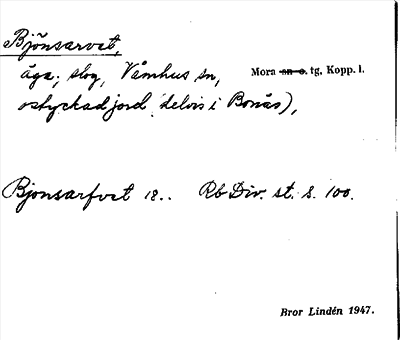 Björnsarvet,
äga, skog, Våmhus sn, Mora sn o. tg, Kopp. l.
ostyckad jord delvis i Bonäs),
Bjonsarfvet 18.. Rb Div. st. s. 100.
Bror Lindén 1947.